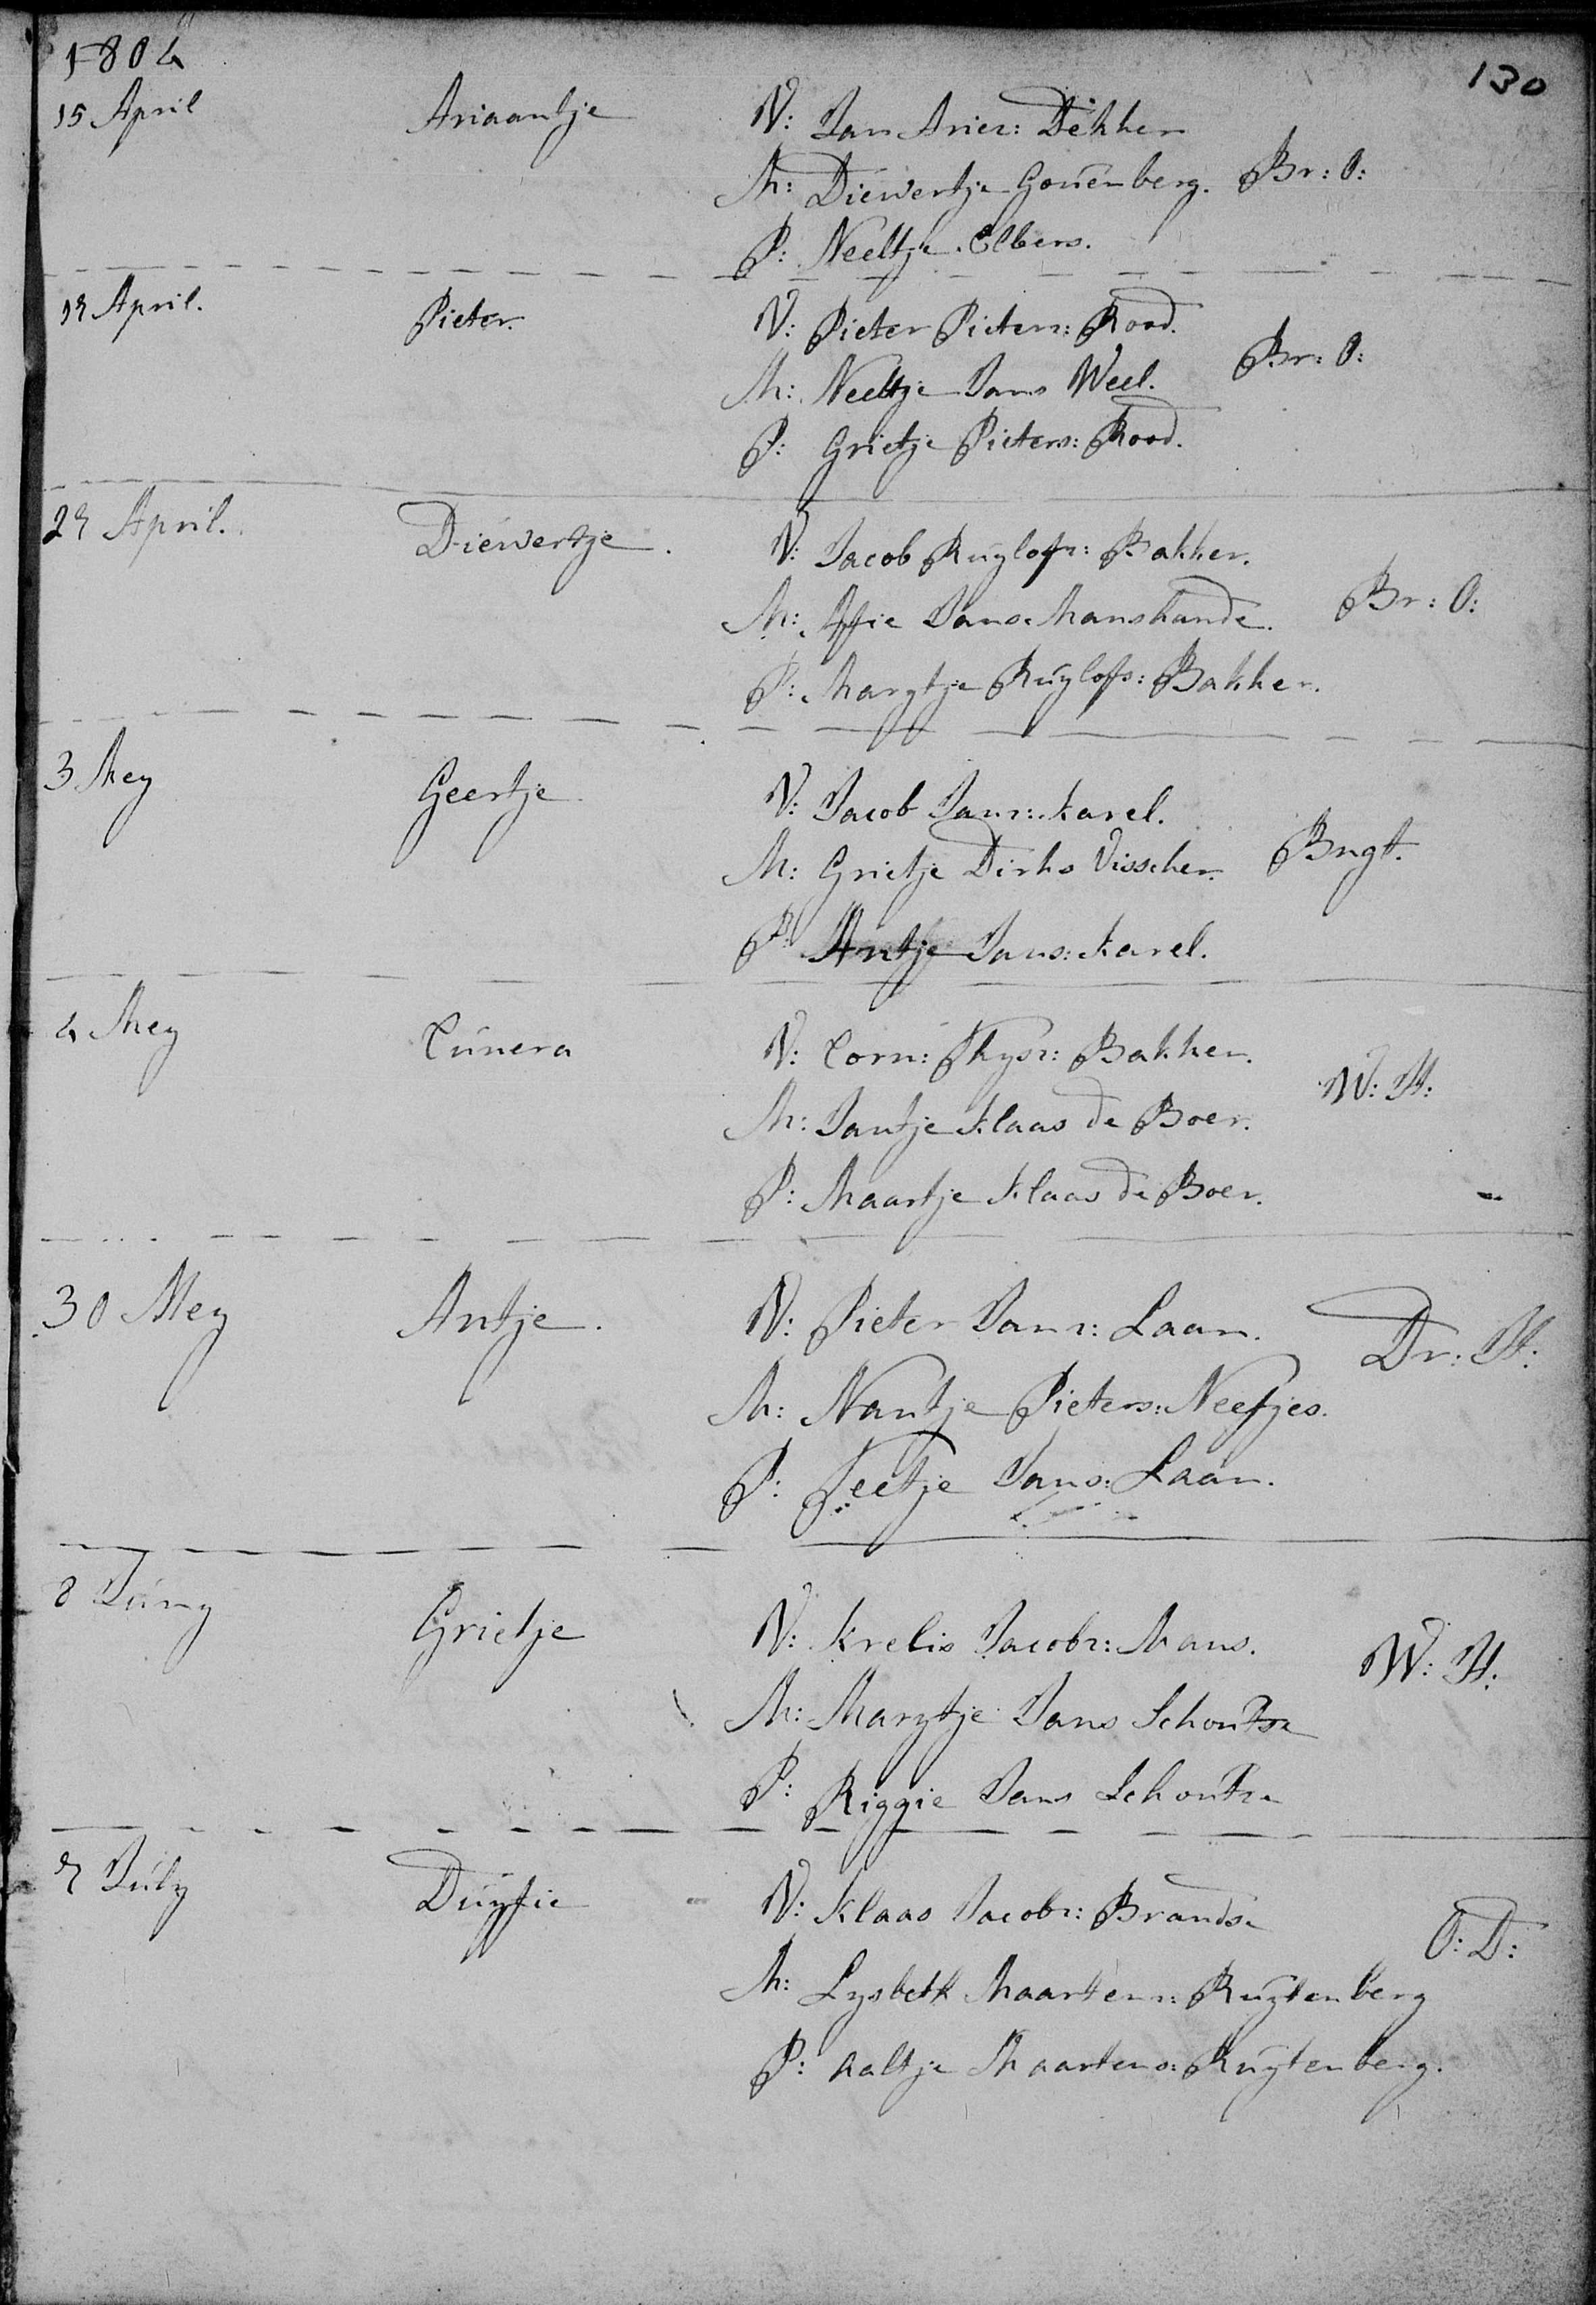 1804
130
15 April Ariaantje V: Jan Ariez: Dekker
M: Diewertje Gouenberg. Br: O:
P: Neeltje Elbers.
19 April. Pieter. V: Pieter Pieterz: Rood.
M: Neeltje Jans Weel. Br: O:
P: Grietje Pieters: Rood.
29 April. Diewertje. V: Jacob Ruylofz: Bakker.
M: Affie Jans Manshande. Br: O:
P: Marytje Ruylofs: Bakker.
3 Mey Geertje V: Jacob Janz: Karel.
M: Grietje Dirks Visscher. Bngt.
P: Antje Jans: Karel.
4 Mey Cunera V: Corn: Thysz: Bakker.
M: Jantje Klaas de Boer. W: H:
P: Maartje Klaas de Boer.
30 Mey Antje. V: Pieter Janz: Laan. Dr: H:
M: Nantje Pieters: Neefjes.
P: Peetje Jans: Laan.
8 Juny Grietje V: Krelis Jacobz: Mans. W: H:
M: Marytje Jans Schoutse
P: Riggie Jans Schoutse
9 July Duyfie V: Klaas Jacobz: Brandse O: D:
M: Lysbeth Maartens: Ruytenberg
P: Aaltje Maartens: Ruytenberg.